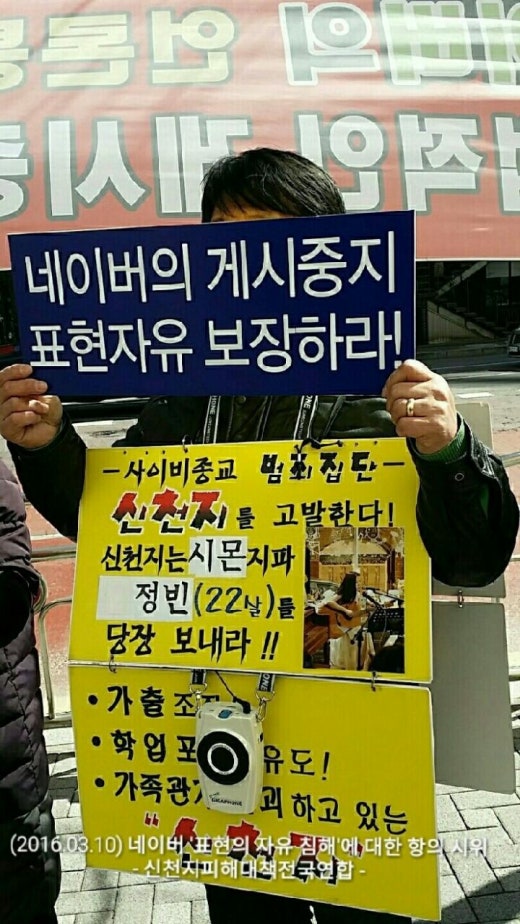 버의 언론
적인 게시중
네이버의 게시중지
표현자유 보장하라!
-사이비종교 범죄집단-
신천지를 고발한다!
신천지는 시몬지파
정빈(22살)를
당장 보내라!!
• 가출조
• 학업포 유도!
• 가족관 하고 있는
(2016.03.10) 네이버 '표현의 자유 침해'에 대한 항의 시위
- 신천지피해대책전국연합 -